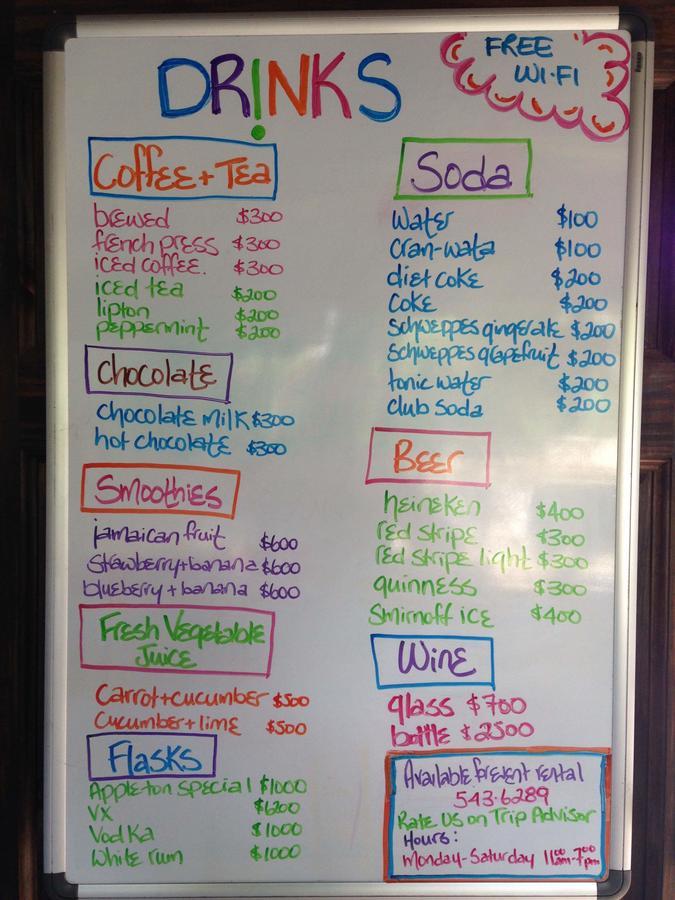 DR!NKS
FREE
WI-FI
Coffee + Tea
brewed $300
french press $300
iced coffee. $300
iced tea $200
lipton $200
peppermint $200
Chocolate
chocolate milk $300
hot chocolate $300
Smoothies
jamaican fruit $600
strawberry+banana $600
blueberry + banana $600
Fresh Vegetable
Juice
Carrot+cucumber $500
Cucumber+lime $500
Flasks
Appleton special $1000
VX $1200
Vodka $1000
White rum $1000
Soda
Water $100
Cran-wata $100
diet coke $200
Coke $200
Schweppes gingerale $200
Schweppes grapefruit $200
tonic water $200
club soda $200
Beer
heineken $400
red stripe $300
red stripe light $300
guinness $300
Smirnoff ice $400
Wine
glass $700
bottle $2500
Available for event rental
543-6289
Rate us on Trip Advisor
Hours:
Monday-Saturday 11:00am-7:00pm